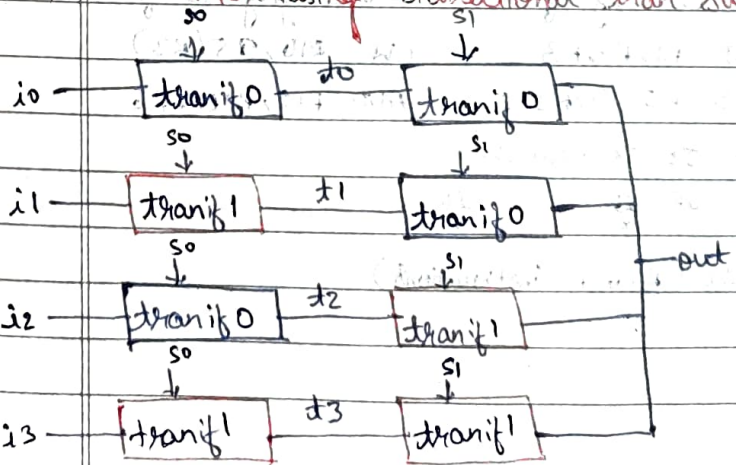 s0 s1
i0 tranif0 t0 tranif0
s0 s1
i1 tranif1 t1 tranif0
out
s0 s1
i2 tranif0 t2 tranif1
s0 s1
i3 tranif1 t3 tranif1